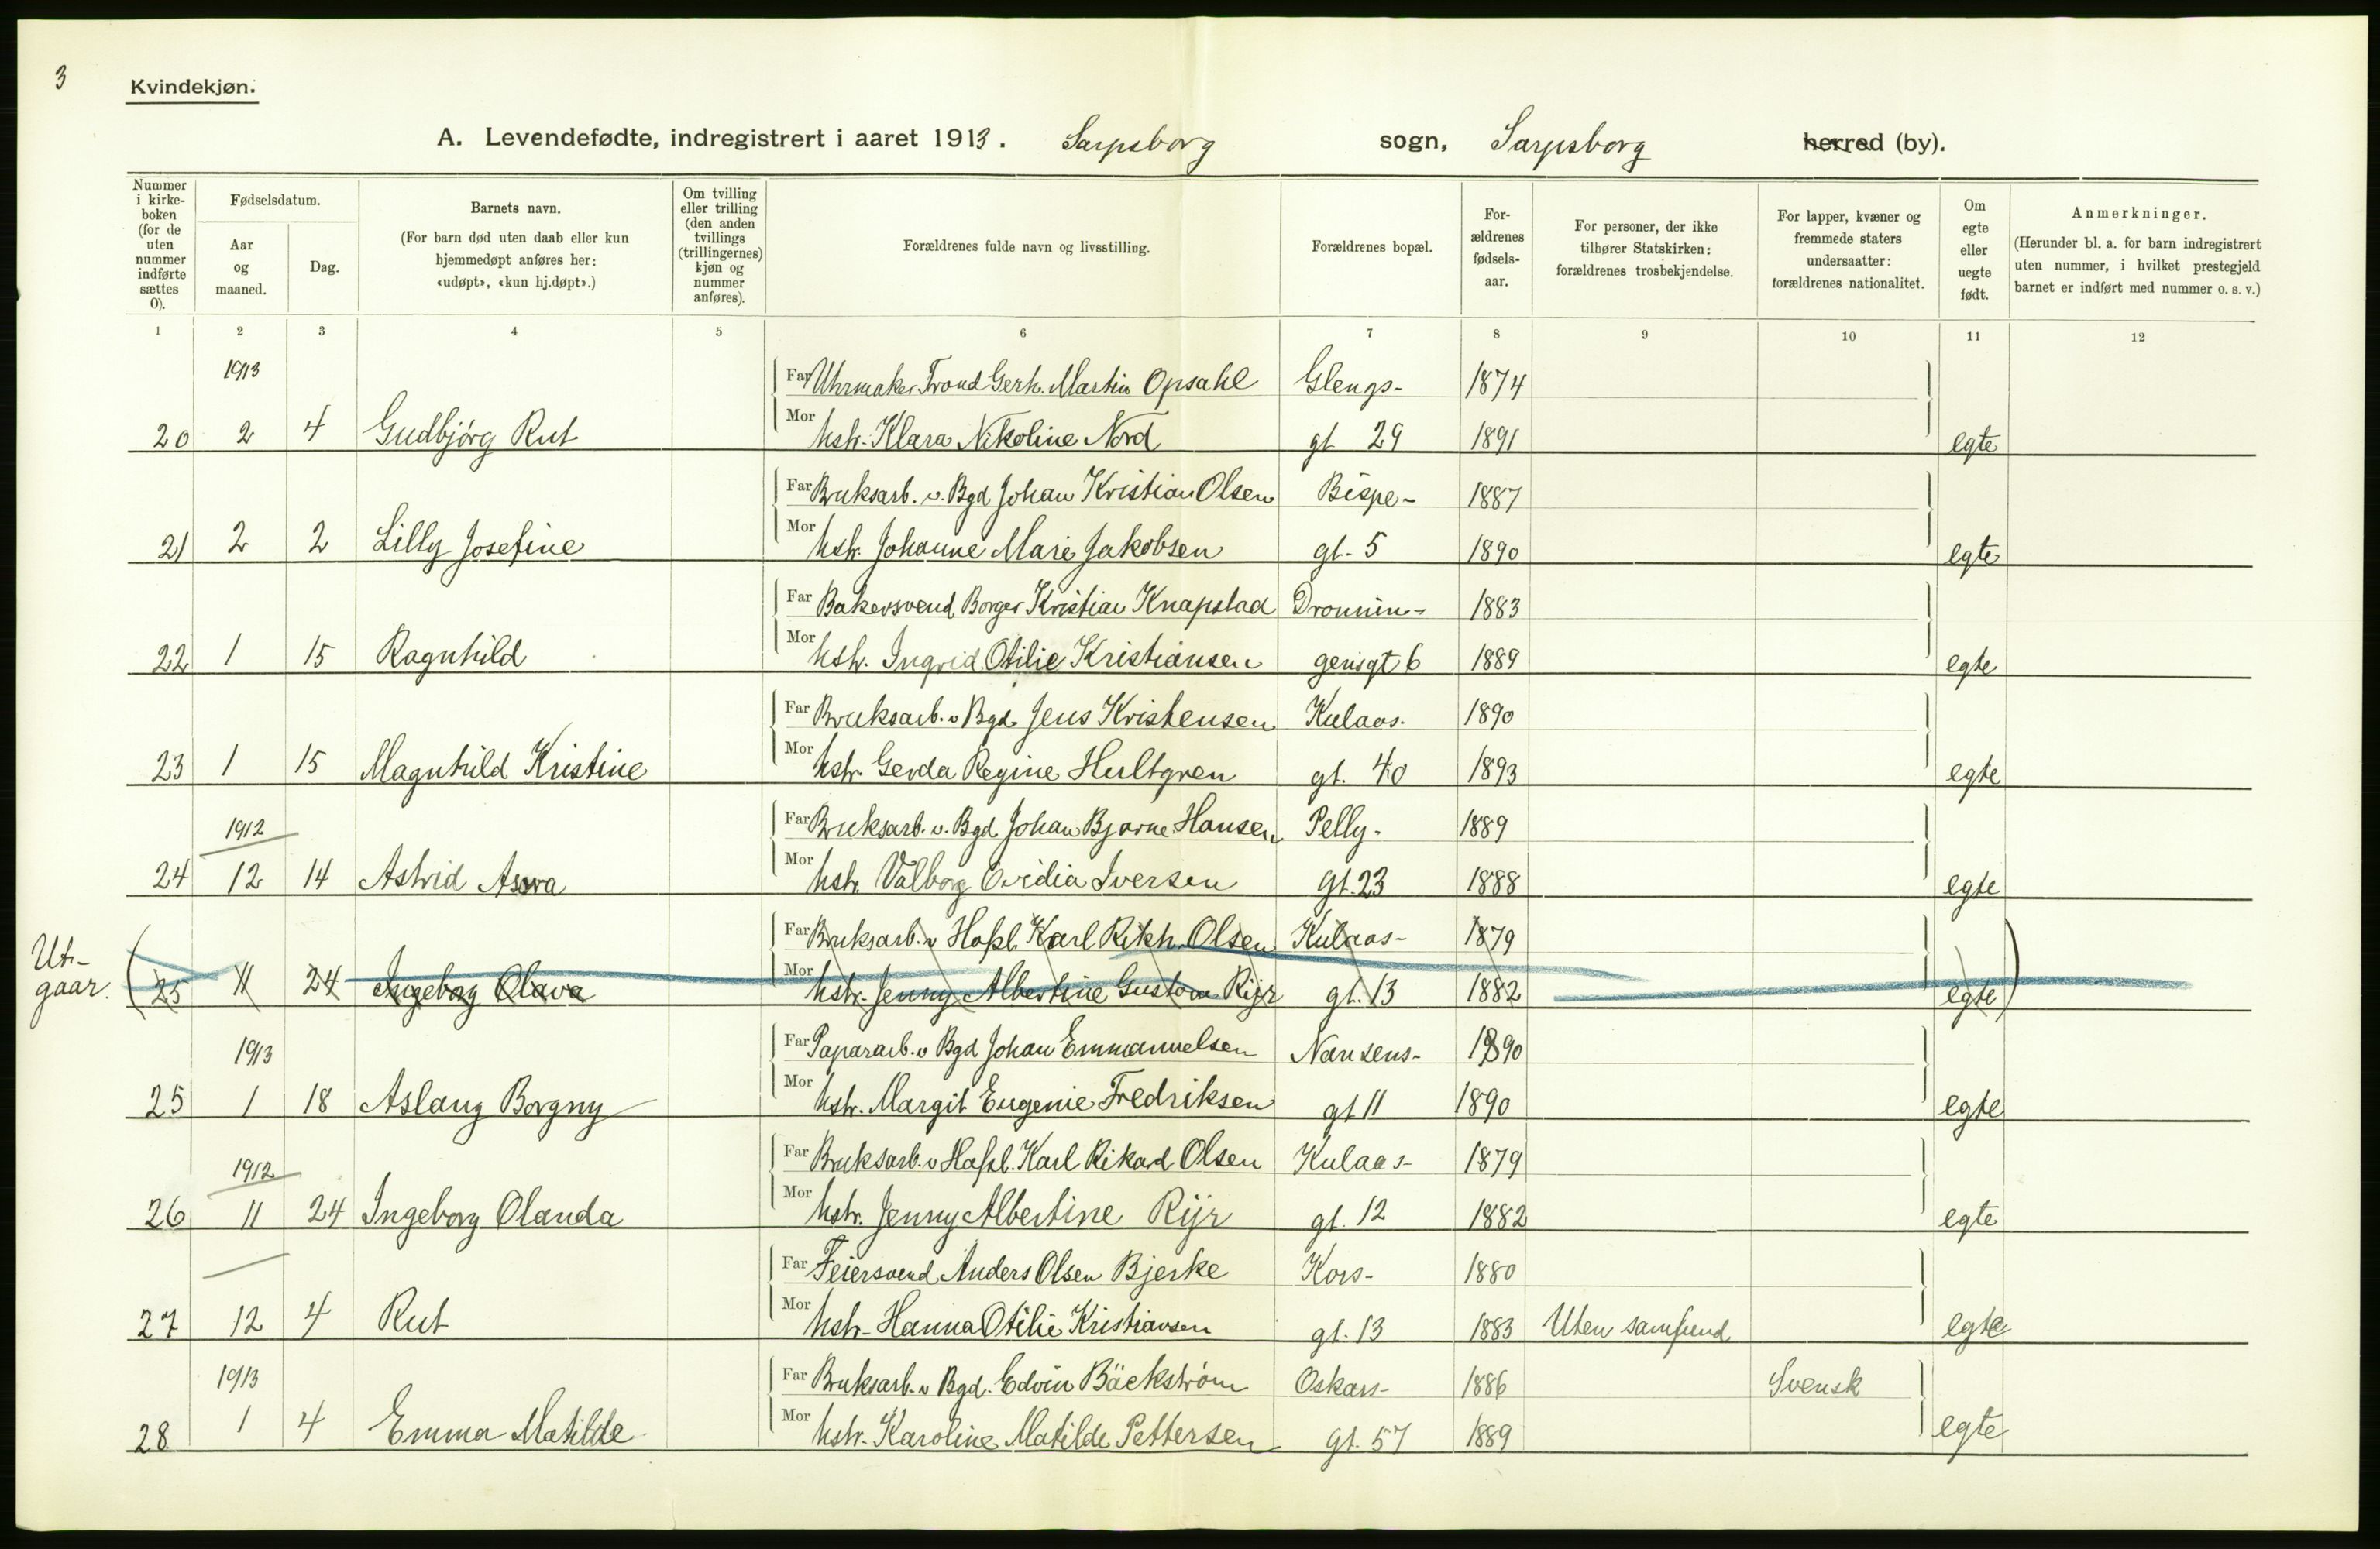 3
Kvindekjøn.
A. Levendefødte, indregistrert i aaret 1913. Sarpsborg sogn, Sarpsborg herred (by).
Nummer i kirke-boken (for de uten nummer indførte sættes 0).
Fødselsdatum.
Aar og maaned.
Dag.
Barnets navn.
(For barn død uten daab eller kun hjemmedøpt anføres her: «udøpt», «kun hj.døpt».)
Om tvilling eller trilling (den anden tvillings (trillingernes) kjøn og nummer anføres).
Forældrenes fulde navn og livsstilling.
Forældrenes bopæl.
For-ældrenes fødsels-aar.
For personer, der ikke tilhører Statskirken: forældrenes trosbekjendelse.
For lapper, kvæner og fremmede staters undersaatter: forældrenes nationalitet.
Om egte eller uegte født.
Anmerkninger.
(Herunder bl. a. for barn indregistrert uten nummer, i hvilket prestegjeld barnet er indført med nummer o. s. v.)
1 2 3 4 5 6 7 8 9 10 11 12
1913 Far Uhrmaker Trond Gerh. Martin Opsahl Glengs- 1874
20 2 4 Gudbjörg Rut Mor hstr. Klara Nikoline Nord gt 29 1891 egte
Far Bruksarb. v. Bgd Johan Kristian Olsen Bispe- 1887
21 2 2 Lilly Josefine Mor hstr. Johanne Marie Jakobsen gt. 5 1890 egte
Far Bakersvend Borger Kristian Knapstad Dronnin- 1883
22 1 15 Ragnhild Mor hstr. Ingrid Otilie Kristiansen gensgt 6 1889 egte
Far Bruksarb. v Bgd Jens Kristensen Kulaas- 1890
23 1 15 Magnhild Kristine Mor hstr. Gerda Regine Hultgren gt. 40 1893 egte
1912 Far Bruksarb. v. Bgd. Johan Bjarne Hansen Pelly- 1889
24 12 14 Astrid Mor hstr. Valborg Ovidia Iversen gt. 23 1888 egte
Far Bruksarb. v Hafsl. Karl Rikh. Olsen Kulaas- 1879
Ut-
gaar. (25 11 24 Ingeborg Olava Mor hstr. Jenny Albertine Gustava Rijr gt. 13 1882 egte)
1913 Far Papirarb. v Bgd Johan Emmanuelsen Nansens- 1890
25 1 18 Aslaug Borgny Mor hstr. Margit Eugenie Fredriksen gt 11 1890 egte
1912 Far Bruksarb. v Hafsl. Karl Rikard Olsen Kulaas- 1879
26 11 24 Ingeborg Olanda Mor hstr. Jenny Albertine Rijr gt. 12 1882 egte
Far Feiersvend Anders Olsen Bjerke Kors- 1880
27 12 4 Rut Mor hstr. Hanna Otilie Kristiansen gt. 13 1883 Uten samfund egte
1913 Far Bruksarb. v Bgd. Edvin Bäckström Oskars- 1886 Svensk
28 1 4 Emma Matilde Mor hstr. Karoline Matilde Pettersen gt. 57 1889 egte